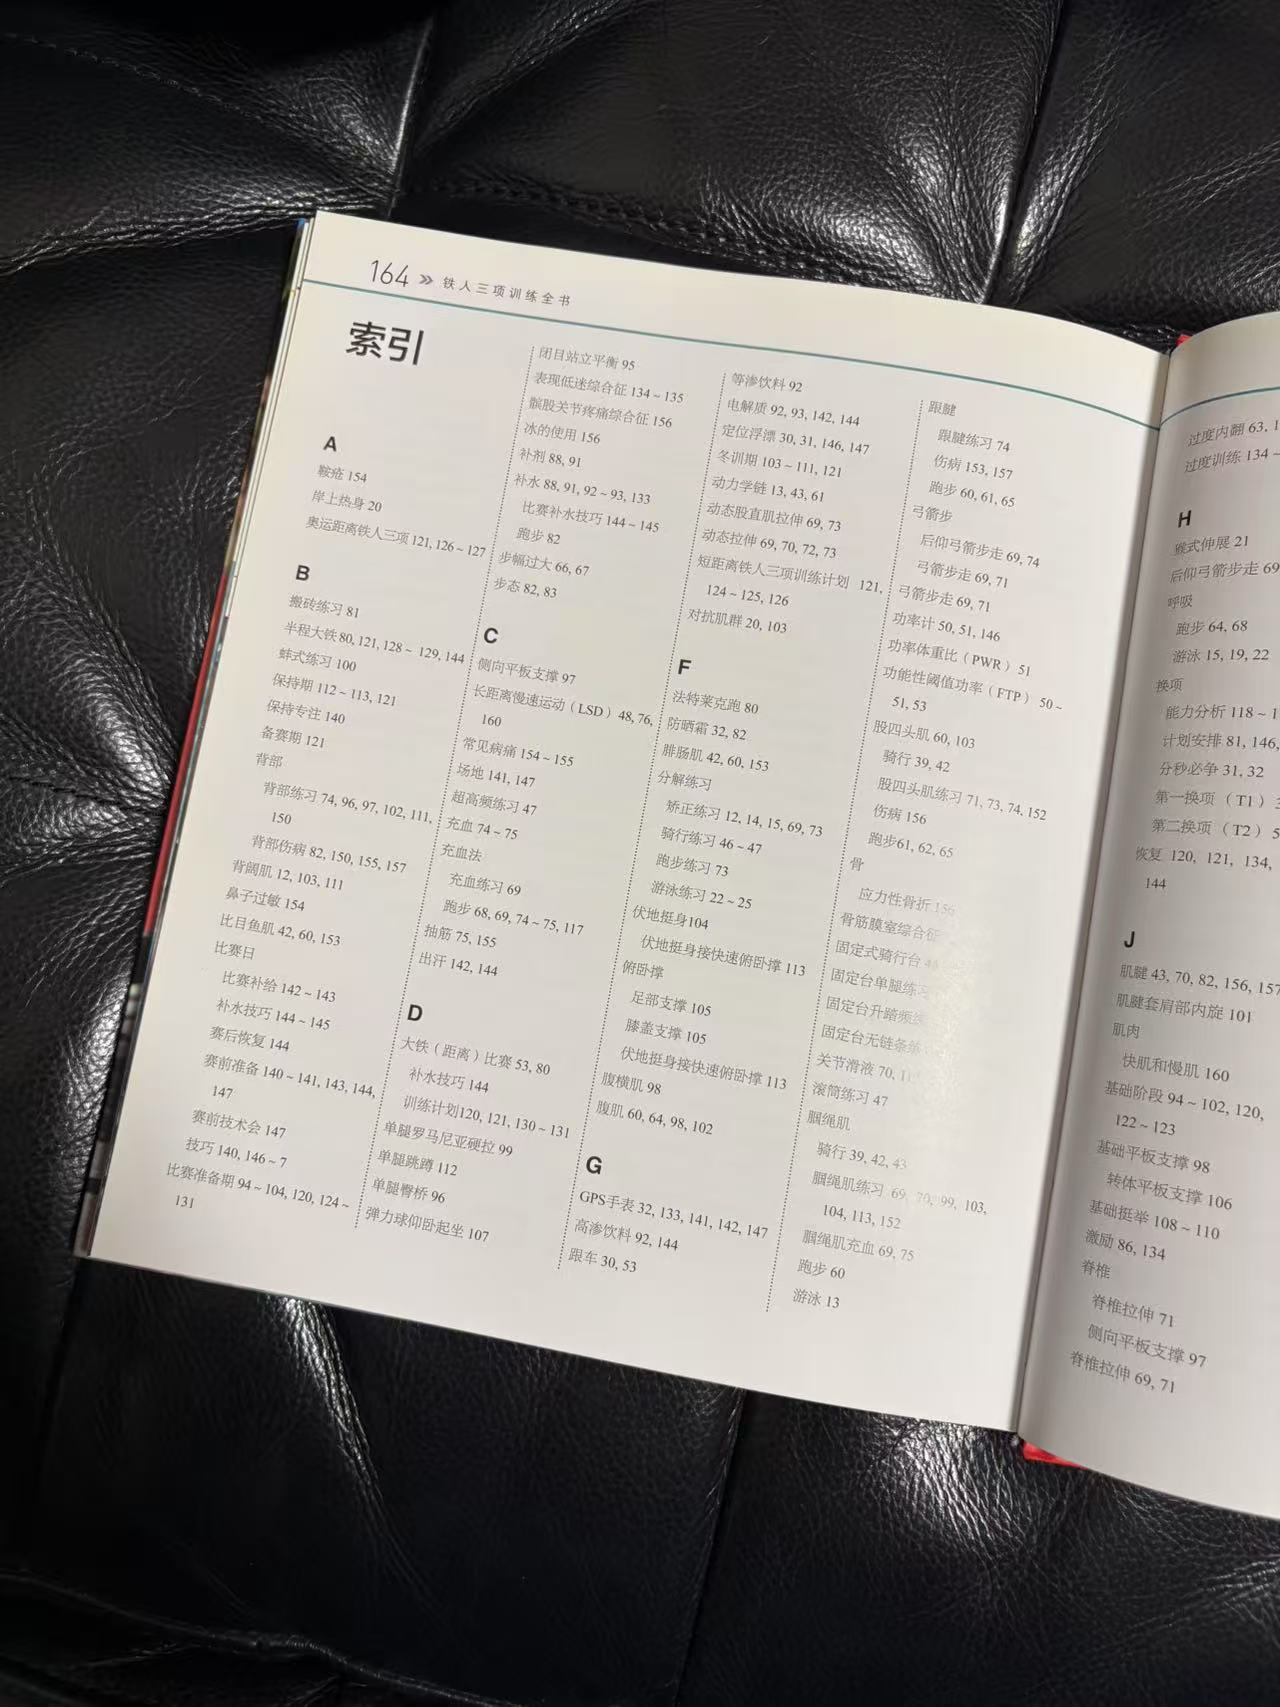 164 » 铁人三项训练全书
索引
A
鞍疮 154
岸上热身 20
奥运距离铁人三项 121, 126 ~ 127
B
搬砖练习 81
半程大铁 80, 121, 128 ~ 129, 144
蚌式练习 100
保持期 112 ~ 113, 121
保持专注 140
备赛期 121
背部
背部练习 74, 96, 97, 102, 111,
150
背部伤病 82, 150, 155, 157
背阔肌 12, 103, 111
鼻子过敏 154
比目鱼肌 42, 60, 153
比赛日
比赛补给 142 ~ 143
补水技巧 144 ~ 145
赛后恢复 144
赛前准备 140 ~ 141, 143, 144,
147
赛前技术会 147
技巧 140, 146 ~ 7
比赛准备期 94 ~ 104, 120, 124 ~
131
闭目站立平衡 95
表现低迷综合征 134 ~ 135
髌股关节疼痛综合征 156
冰的使用 156
补剂 88, 91
补水 88, 91, 92 ~ 93, 133
比赛补水技巧 144 ~ 145
跑步 82
步幅过大 66, 67
步态 82, 83
C
侧向平板支撑 97
长距离慢速运动（LSD）48, 76,
160
常见病痛 154 ~ 155
场地 141, 147
超高频练习 47
充血 74 ~ 75
充血法
充血练习 69
跑步 68, 69, 74 ~ 75, 117
抽筋 75, 155
出汗 142, 144
D
大铁（距离）比赛 53, 80
补水技巧 144
训练计划120, 121, 130 ~ 131
单腿罗马尼亚硬拉 99
单腿跳蹲 112
单腿臀桥 96
弹力球仰卧起坐 107
等渗饮料 92
电解质 92, 93, 142, 144
定位浮漂 30, 31, 146, 147
冬训期 103 ~ 111, 121
动力学链 13, 43, 61
动态股直肌拉伸 69, 73
动态拉伸 69, 70, 72, 73
短距离铁人三项训练计划 121,
124 ~ 125, 126
对抗肌群 20, 103
F
法特莱克跑 80
防晒霜 32, 82
腓肠肌 42, 60, 153
分解练习
矫正练习 12, 14, 15, 69, 73
骑行练习 46 ~ 47
跑步练习 73
游泳练习 22 ~ 25
伏地挺身104
伏地挺身接快速俯卧撑 113
俯卧撑
足部支撑 105
膝盖支撑 105
伏地挺身接快速俯卧撑 113
腹横肌 98
腹肌 60, 64, 98, 102
G
GPS手表 32, 133, 141, 142, 147
高渗饮料 92, 144
跟车 30, 53
跟腱
跟腱练习 74
伤病 153, 157
跑步 60, 61, 65
弓箭步
后仰弓箭步走 69, 74
弓箭步走 69, 71
弓箭步走 69, 71
功率计 50, 51, 146
功率体重比（PWR）51
功能性阈值功率（FTP）50 ~
51, 53
股四头肌 60, 103
骑行 39, 42
股四头肌练习 71, 73, 74, 152
伤病 156
跑步61, 62, 65
骨
应力性骨折 156
骨筋膜室综合征
固定式骑行台
固定台单腿练习
固定台升踏频
固定台无链条
关节滑液 70,
滚筒练习 47
腘绳肌
骑行 39, 42, 43
腘绳肌练习 69, 70, 99, 103,
104, 113, 152
腘绳肌充血 69, 75
跑步 60
游泳 13
过度内翻 63,
过度训练 134 ~
H
猴式伸展 21
后仰弓箭步走 69
呼吸
跑步 64, 68
游泳 15, 19, 22
换项
能力分析 118 ~
计划安排 81, 146,
分秒必争 31, 32
第一换项（T1）
第二换项（T2）
恢复 120, 121, 134,
144
J
肌腱 43, 70, 82, 156, 157
肌腱套肩部内旋 101
肌肉
快肌和慢肌 160
基础阶段 94 ~ 102, 120,
122 ~ 123
基础平板支撑 98
转体平板支撑 106
基础挺举 108 ~ 110
激励 86, 134
脊椎
脊椎拉伸 71
侧向平板支撑 97
脊椎拉伸 69, 71